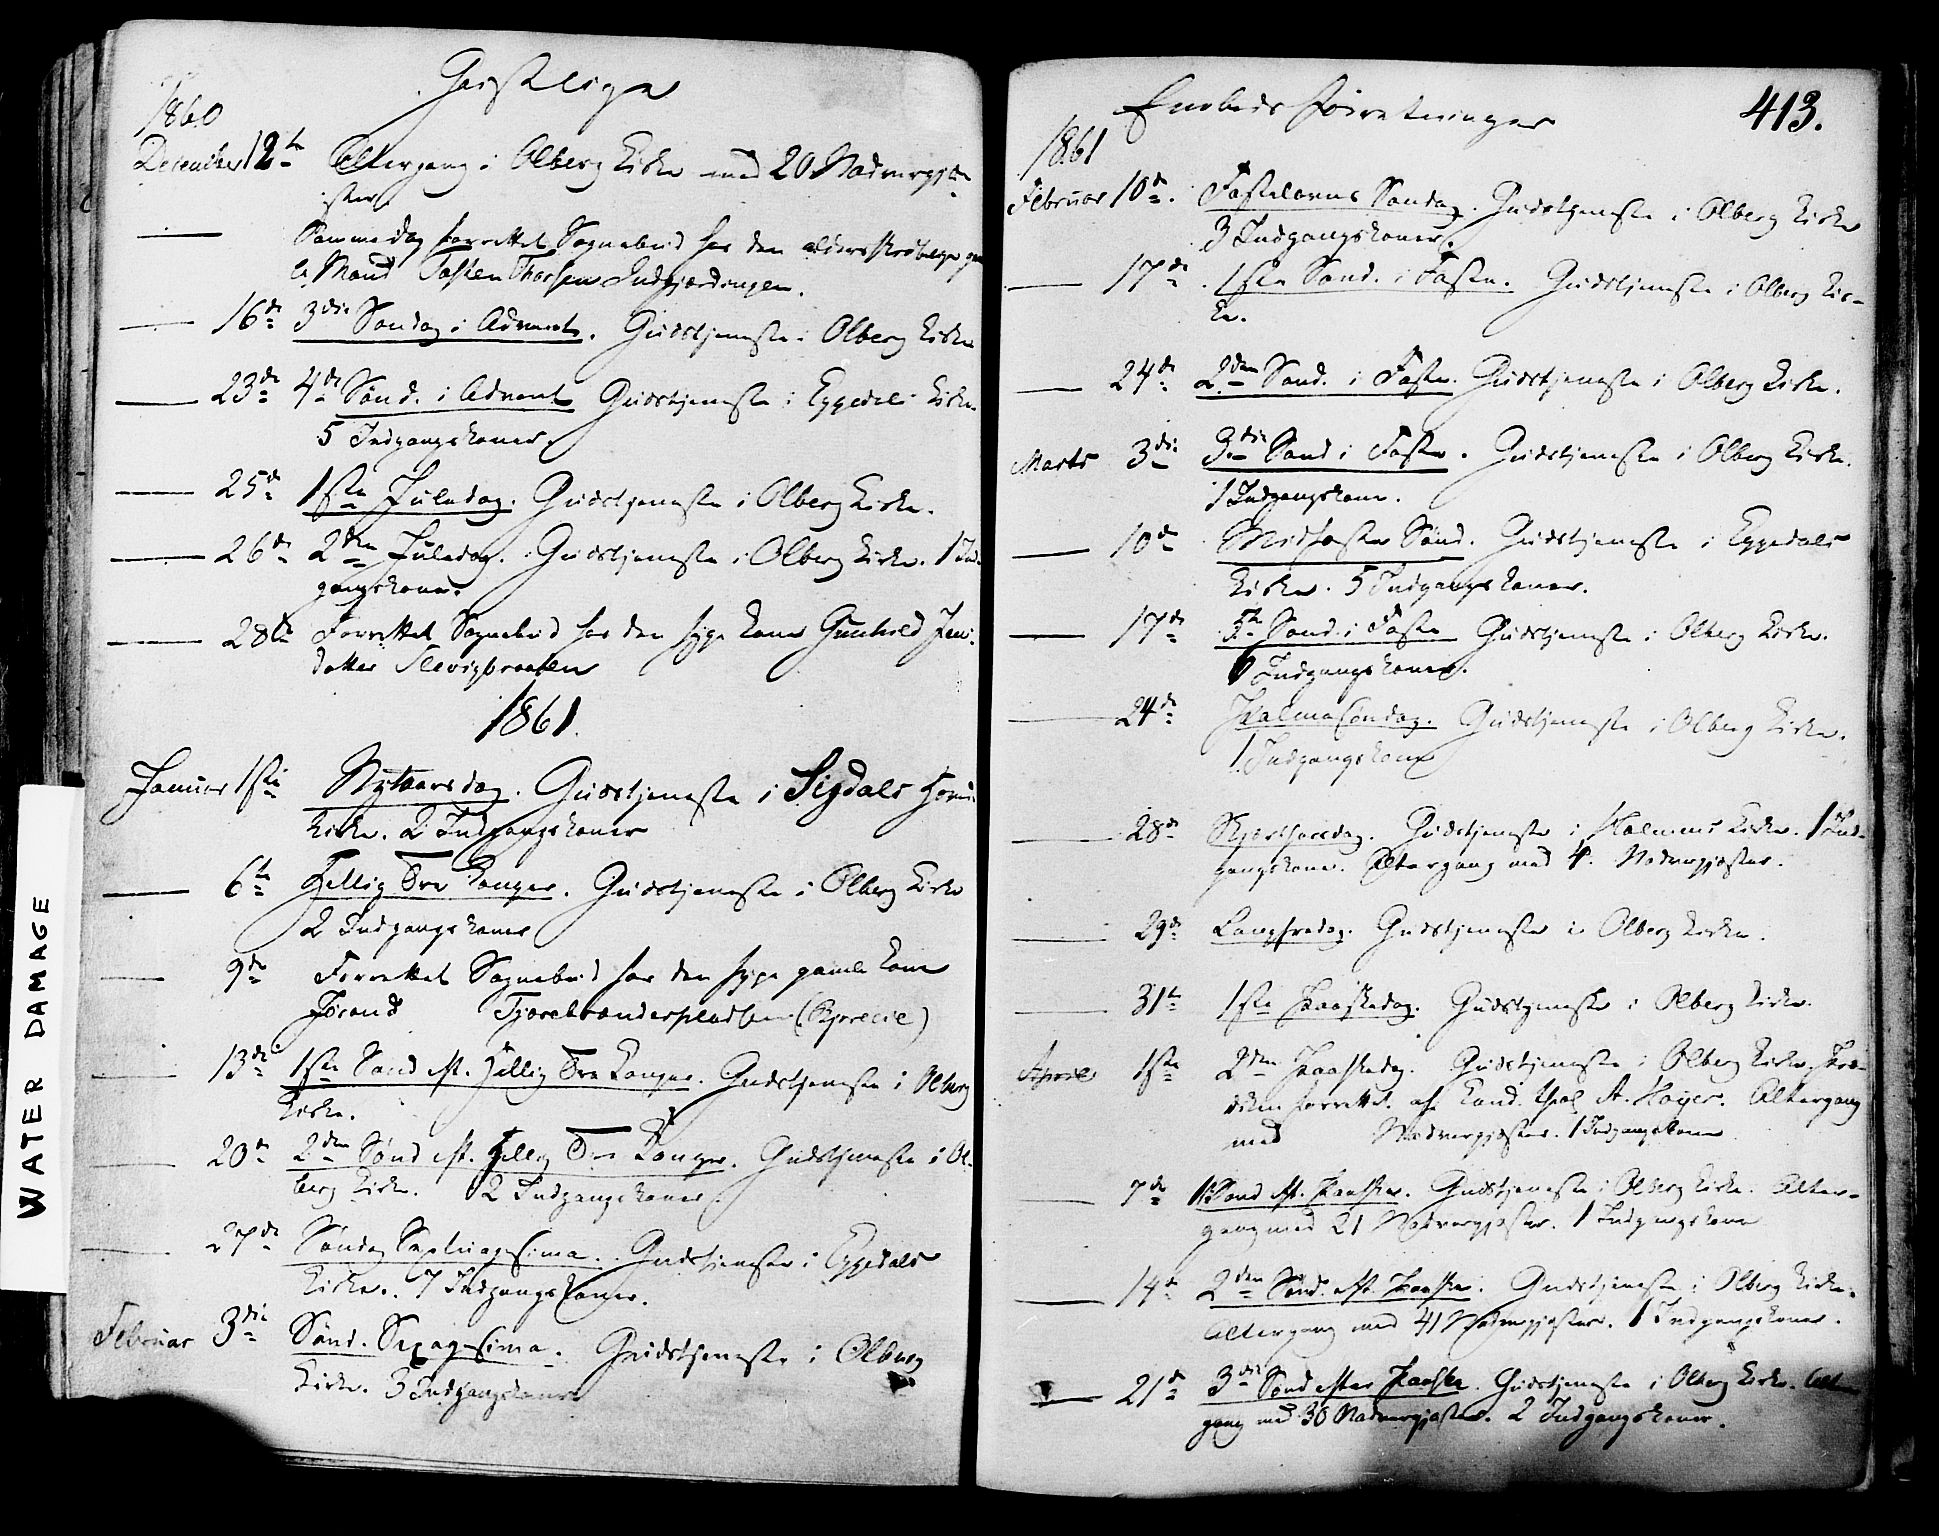 Geistlige
1860
December 12te Altergang i Olberg Kirke med 20 Nadvergjæ-
ster.
Sammedag forrettet Sognebud hos den aldersskröbelige gam-
le Mand Tosten Thorsen
16de 3die Søndag i Advent. Gudstjeneste i Olberg Kirke
23de 4de Sønd. i Advent Gudstjeneste i Eggedal Kirke.
5 Indgangskoner.
25de 1ste Juledag. Gudstjeneste i Olberg Kirke.
26de 2den Juledag. Gudstjeneste i Olberg Kirke. 1 Ind-
gangskone.
28de Forrettet Sognebud hos den syge Kone Gunhild Jens-
datter Slevigbraaten
1861.
Januar 1ste Nytaarsdag. Gudstjeneste i Sigdals Hoved-
kirke. 2 Indgangskoner
6te Hellig Tre Konger. Gudstjeneste i Olberg Kirke
2 Indgangskoner
9de Forrettet Sognebud hos den syge gamle Kone
Jörand Tjorebraaderpladsen
13de 1ste Sønd eft. Hellig Tre Konger. Gudstjeneste i Olberg
Kirke.
20de 2den Sønd eft. Hellig Tre Konger. Gudstjeneste i Ol-
berg Kirke. 2 Indgangskoner
27de Søndag Septuagesima. Gudstjeneste i Eggedals
Kirke. 7 Indgangskoner.
Februar 3die Sønd. Sexagesima. Gudstjeneste i Olberg
Kirke. 3 Indgangskoner
Embedsforretninger
413.
1861
Februar 10de. Fastelavns Søndag. Gudstjeneste i Olberg Kirke
3 Indgangskoner.
17de 1ste Sønd. i Faste. Gudstjeneste i Olberg Kir-
ke.
24de 2den Sønd. i Faste. Gudstjeneste i Olberg Kirke.
Marts 3die 3die Sønd i Faste. Gudstjeneste i Olberg Kirke.
1 Indgangskone.
10de Midfaste Sønd. Gudstjeneste i Eggedals
Kirke. 5 Indgangskoner.
17de 5te Sønd. i Faste Gudstjeneste i Olberg Kirke.
6 Indgangskoner.
24de Palmesøndag. Gudstjeneste i Olberg Kirke.
1 Indgangskone
28de Skjærthorsdag. Gudstjeneste i Holmens Kirke. 1 Ind-
gangskone. Altergang med 4. Nadvergjæster.
29de Langfredag. Gudstjeneste i Olberg Kirke.
31te 1ste Paaskedag. Gudstjeneste i Olberg Kirke.
April 1ste 2den Paaskedag. Gudstjeneste i Olberg Kirke, Præ-
diken forrettet af Cand. theol A. Høyer. Altergang
med Nadvergjæster. 1 Indgangskone
7de 1. Sønd eft. Paaske. Gudstjeneste i Olberg Kirke. Alter-
gang med 21 Nadvergjæster. 1 Indgangskone
14de 2den Sønd. eft. Paaske. Gudstjeneste i Olberg Kirke.
Altergang med 41 Nadvergjæster. 1 Indgangskone.
21de 3die Sønd efter Paaske. Gudstjeneste i Olberg Kirke. Alter
gang med 30 Nadvergjæster. 2 Indgangskoner.
WATER DAMAGE